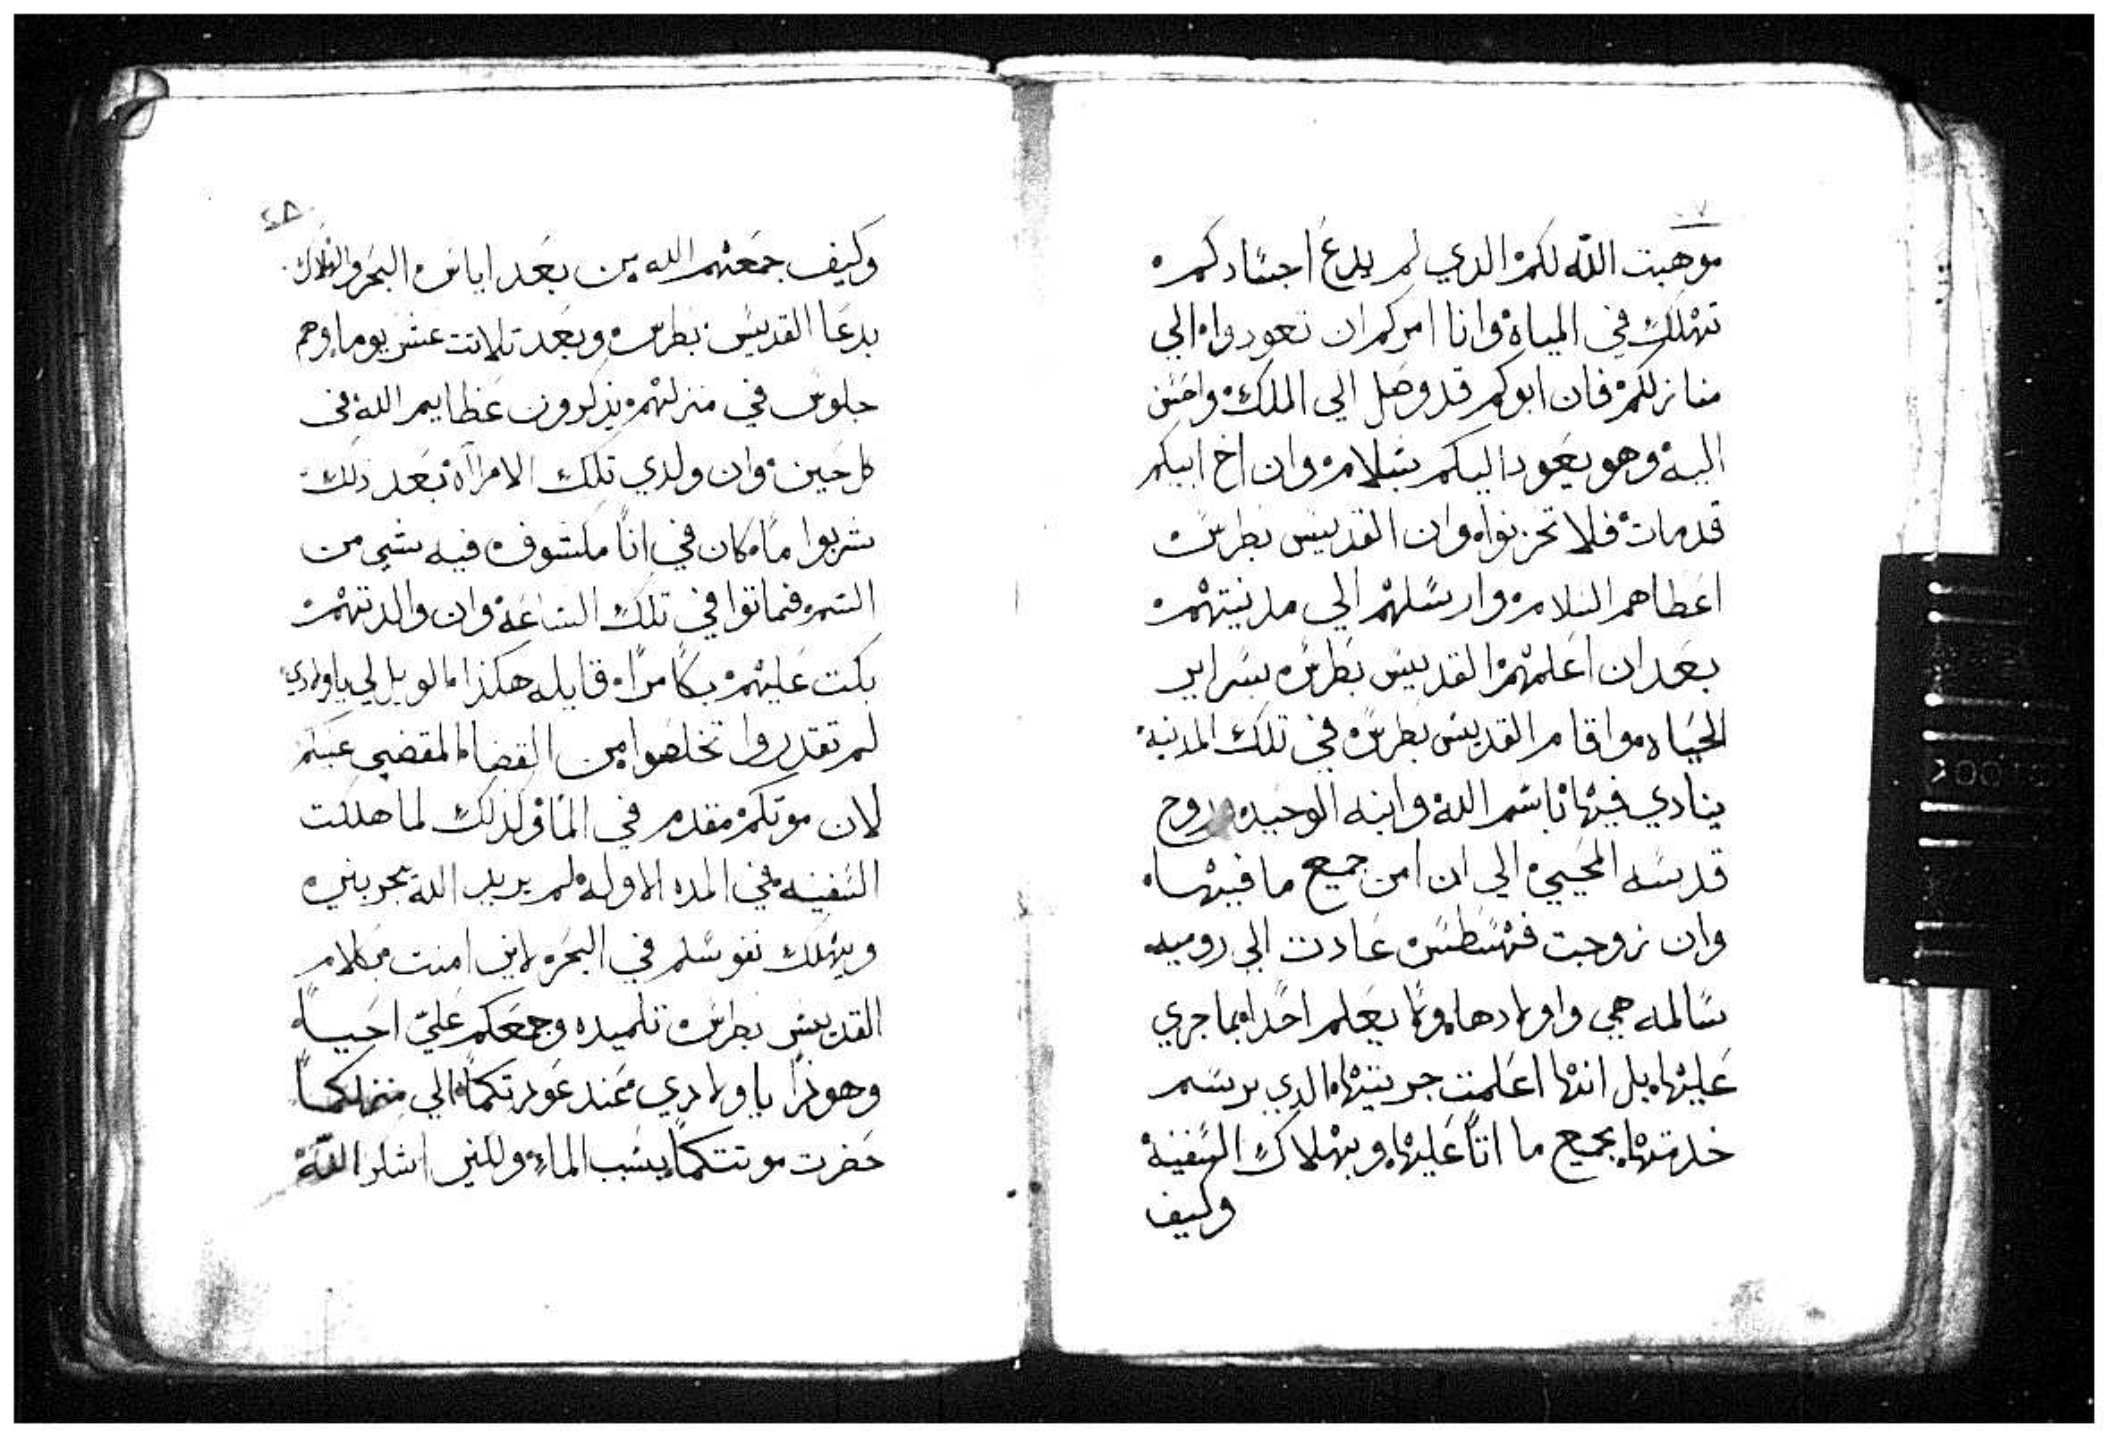 موهبت الله لكم الدي لم يدع اجسادكم
تهلك في المياه وانا امركم ان تعودوا الي
منازلكم فان ابوكم قد وصل الي الملك واحسن
اليه وهو يعود اليكم بسلام وان اخ ابيكم
قد مات فلا تحزنوا وان القديس بطرس
اعطاهم السلام وارسلهم الي مدينتهم
بعد ان اعلمهم القديس بطرس بسراير
الحياه واقام القديس بطرس في تلك المدينه
ينادي فيها باسم الله وابنه الوحيد وروح
قدسه المحيي الي ان امن جميع ما فيها
وان زوجت فهسطس عادت الي روميه
سالمه هي واولادها ولا يعلم احدا بما جري
عليها بل انها اعلمت جريتها الدي برسم
خدمتها بجميع ما اتا عليها وبهلاك السفينه
وكيف
٤٨
وكيف جمعهم الله من بعد اياس البحر والهلاك
بدعا القديس بطرس وبعد تلاتت عشر يوما وهم
جلوس في منزلهم يذكرون عظايم الله في
كل حين وان ولدي تلك الامرأه بعد ذلك
شربوا ماء كان في انا مكشوف فيه شي من
السم فماتوا في تلك الساعه وان والدتهم
بكت عليهم بكا مرا قايله هكذا الويل لي ياولادي
لم تقدروا تخلصوا من القضا المقضي عنكم
لان موتكم مقدم في الما وكذلك لما هلكت
السفينه في المده الاوله لم يريد الله يجربني
ويهلك نفوسكم في البحر لاني امنت بكلام
القديس بطرس تلميده وجمعكم علي احيا
وهوذا ياولادي عند عودتكما الي منزلكما
حضرت موتتكما بسبب الماء ولكني اشكر الله